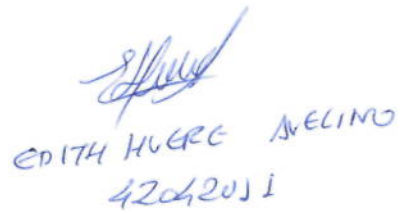 EDITH HUERE AVELINO
42042051